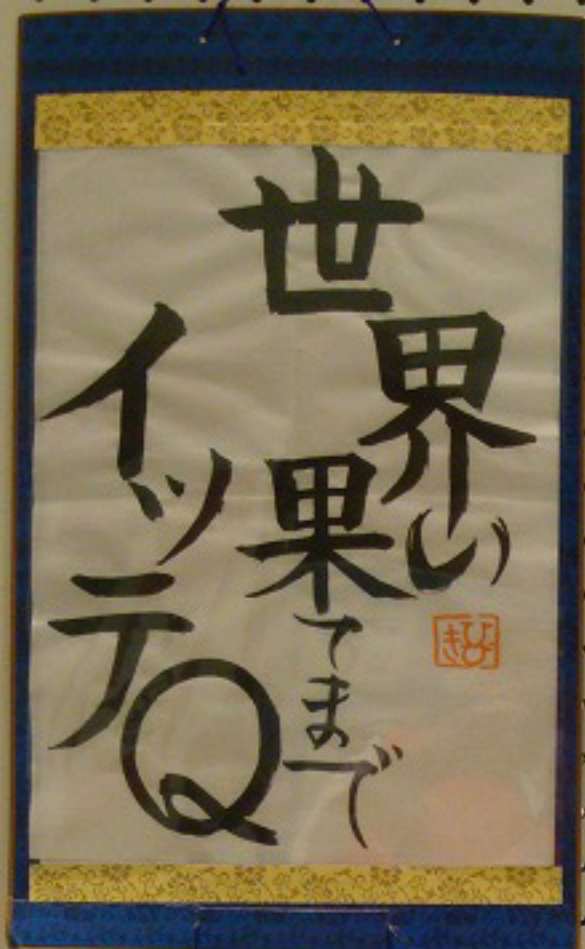 世界の
果てまで
イッテQ